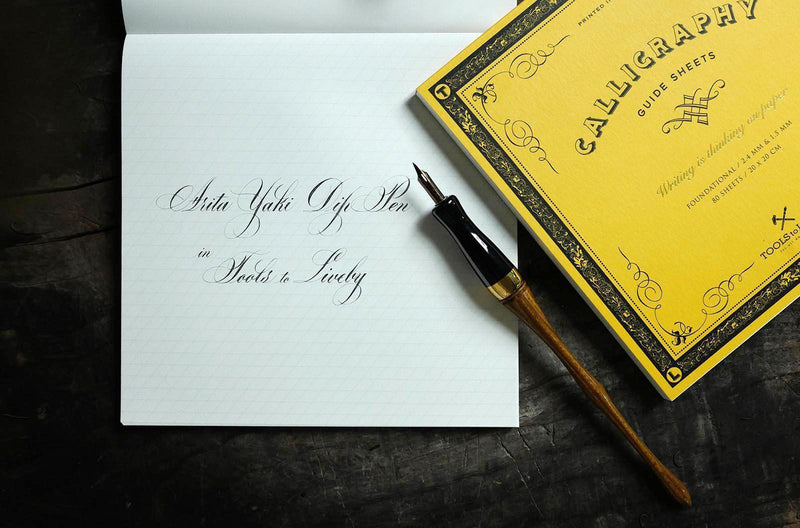 Arita Yaki Dip Pen
in Tools to Liveby
PRINTED
CALLIGRAPHY
GUIDE SHEETS
Writing is thinking on paper
FOUNDATIONAL / 2.4 MM & 1.5 MM
80 SHEETS / 20 X 20 CM
TOOLS to
T
L